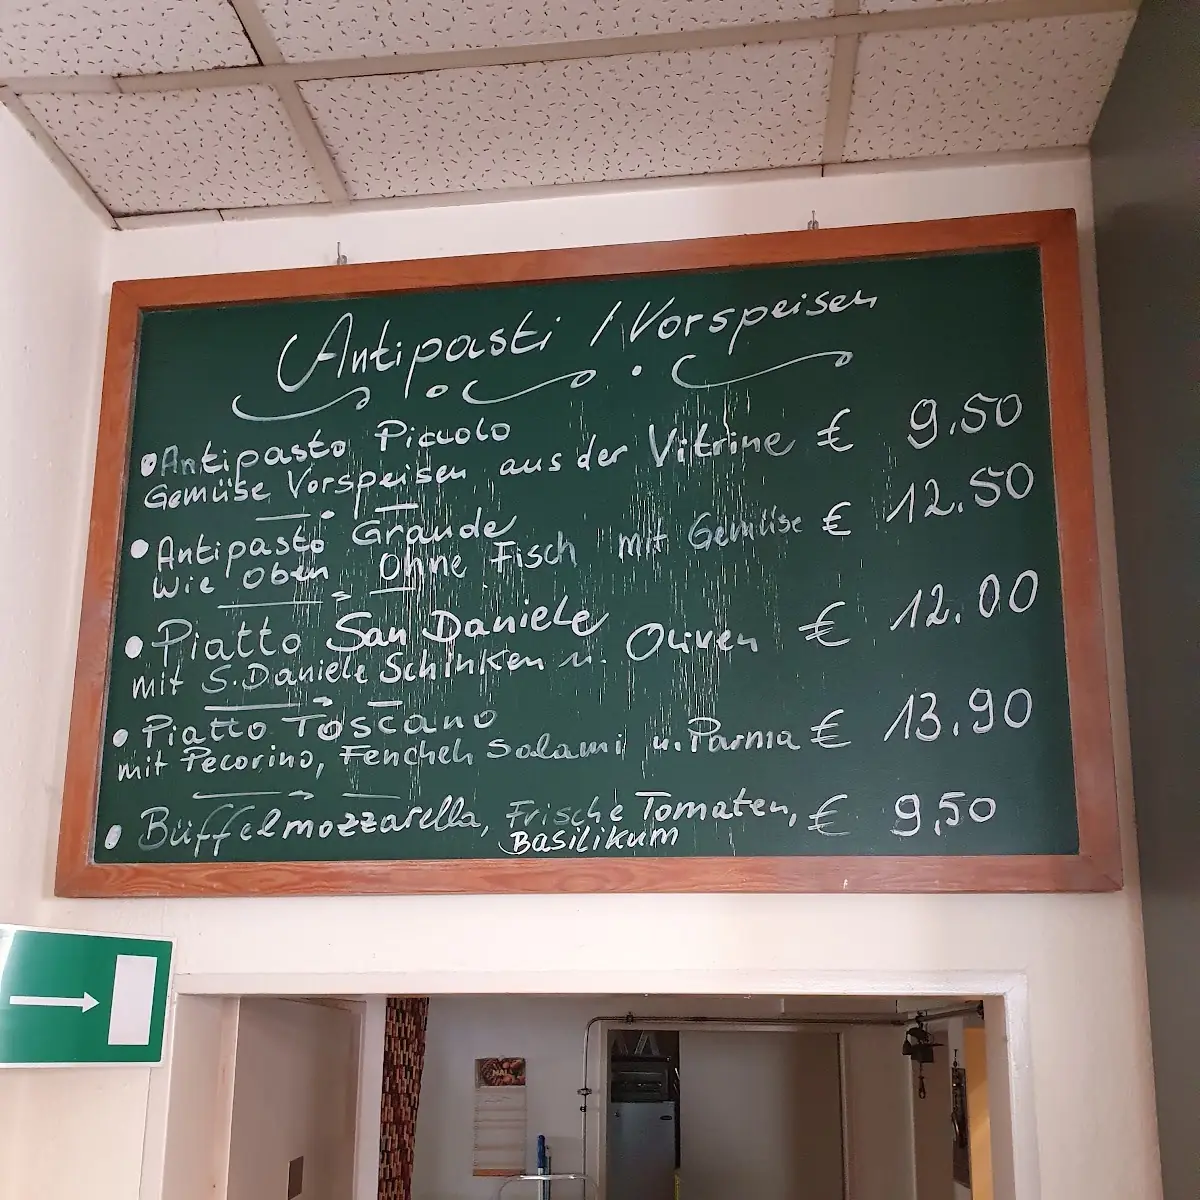 Antipasti / Vorspeisen
Antipasto Piccolo
Gemüse Vorspeisen aus der Vitrine € 9.50
Antipasto Grande
Wie Oben Ohne Fisch mit Gemüse € 12.50
Piatto San Daniele
mit S. Daniele Schinken u. Oliven € 12.00
Piatto Toscano
mit Pecorino, Fenchel Salami u. Parma € 13.90
Büffelmozzarella, Frische Tomaten, € 9,50
Basilikum
MAI